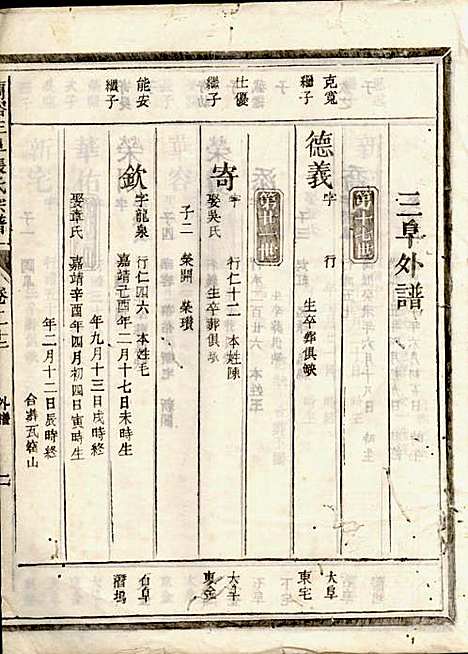 三阜外譜
第十七世
克寬
繼子
德義 字 行 生卒葬俱缺
大阜
東宅
第廿一世
仕優
繼子
寄 字 行仁十二 本姓陳
娶吳氏 生卒葬俱
子二
東金
能安
繼子
欽 字龍泉 行仁四六 本姓毛
嘉靖己酉年二月十七日未時生
年九月十三日戌時終
娶章氏 嘉靖辛酉年四月初四日寅時生
年二月十二日辰時終
合葬瓦窰山
石阜
潛塢
外譜